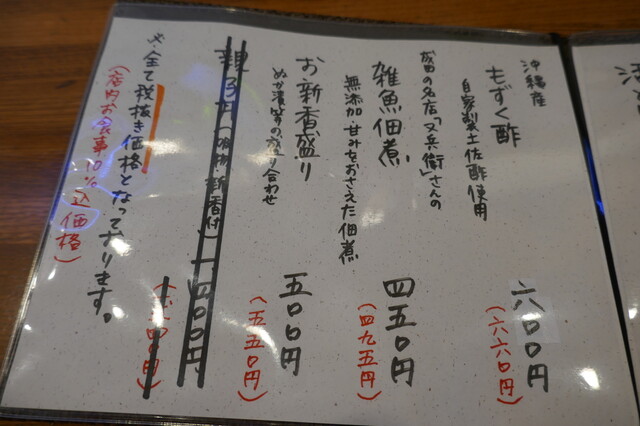 沖縄産
もずく酢
六〇〇円
(六六〇円)
自家製土佐酢使用
成田の名店「又兵衛」さんの
雑魚佃煮
四五〇円
(四九五円)
無添加・甘みをおさえた佃煮
お新香盛り
五〇〇円
(五五〇円)
ぬか漬等の盛り合わせ
新香付)
〇〇円
四〇円)
全て税抜き価格となっております。
(店内お食事10%込価格)